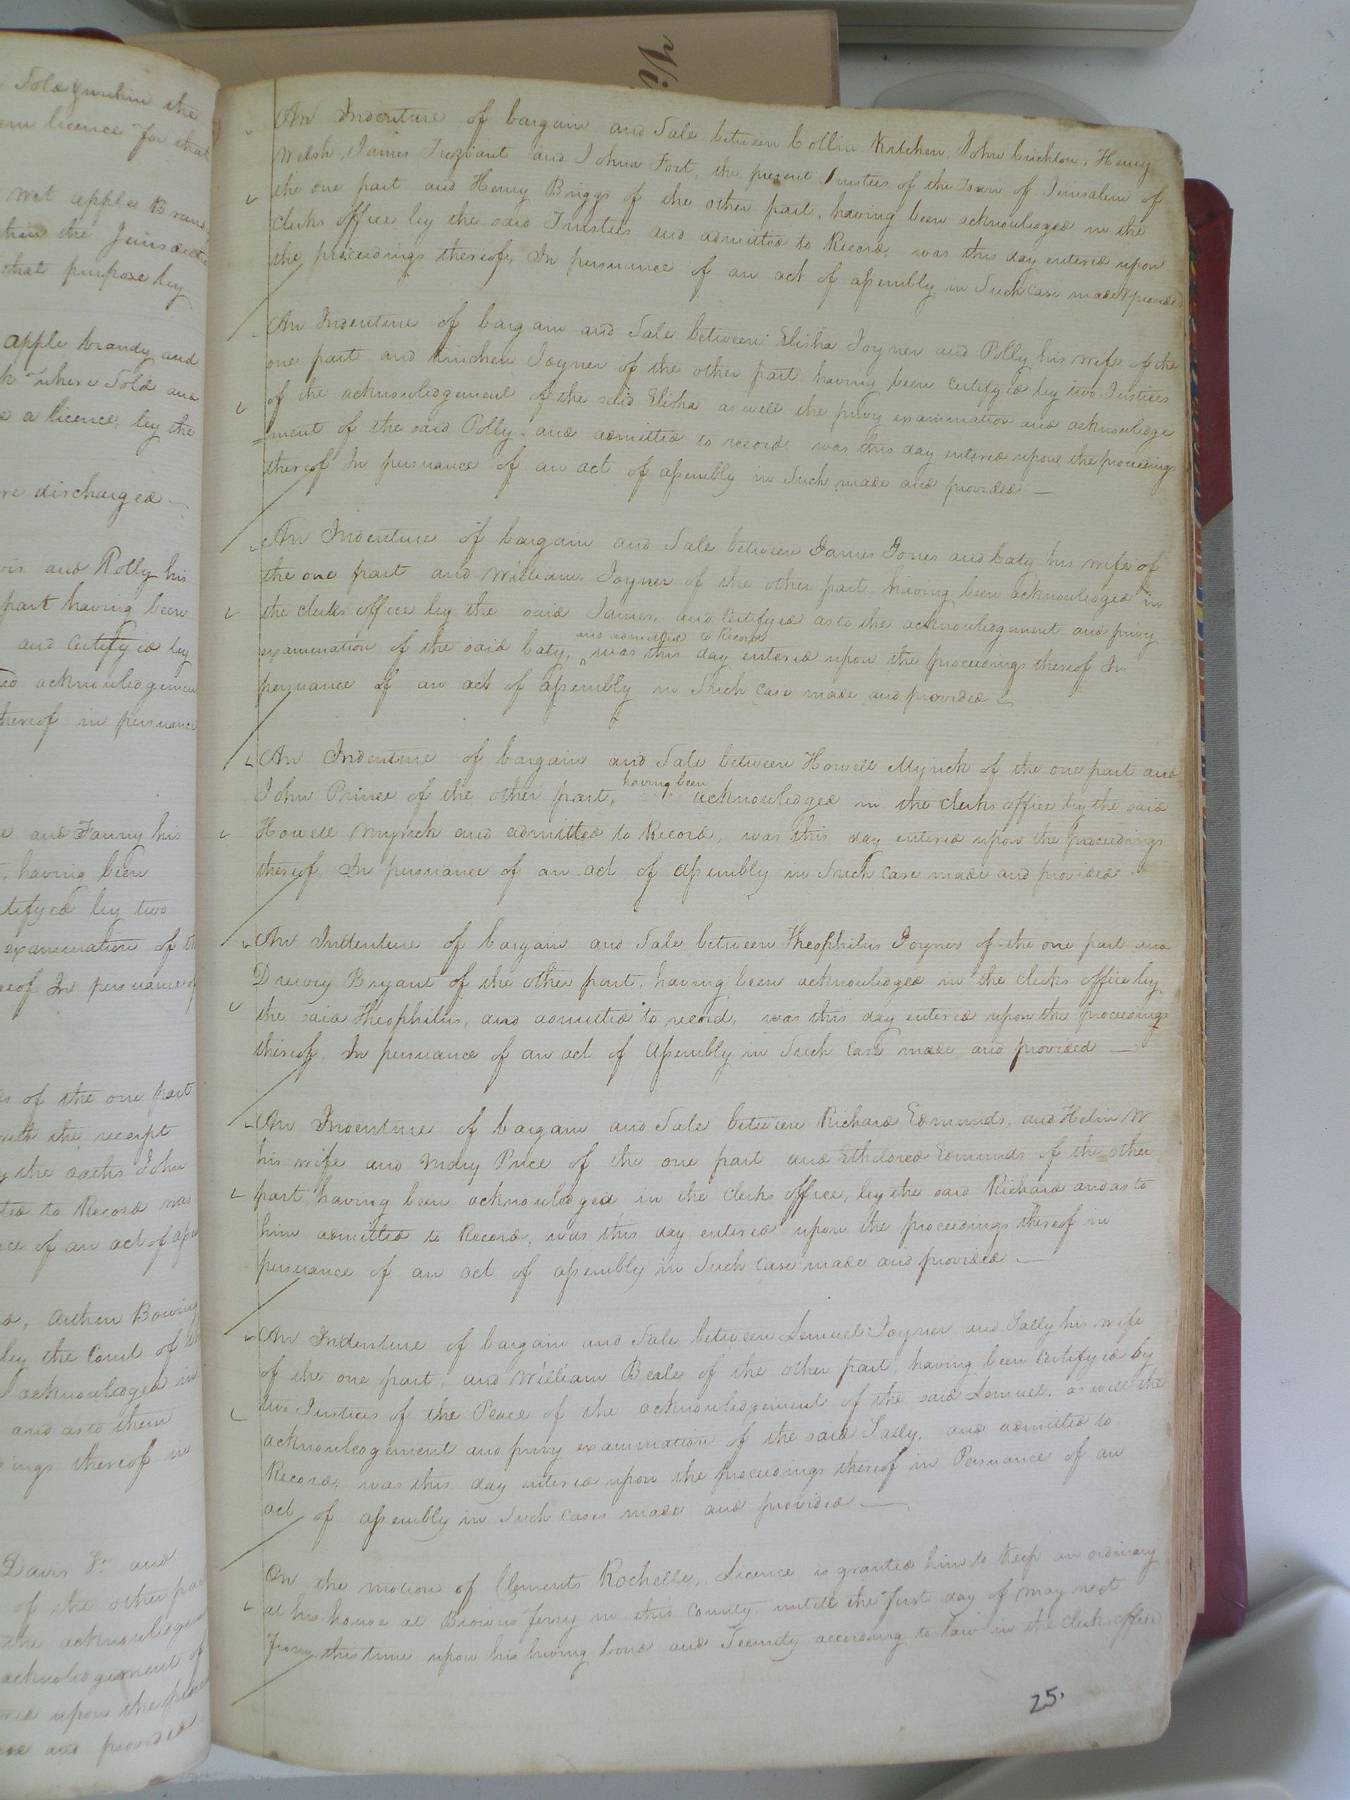 Sold within the
licence for that
wit apple Brand
that purpose by
apple brandy and
where Sold and
a licence, by the
discharged
and Polly his
part having been
and Certifyed by
acknowledgemen
thereof in persuance
and Fanny his
having been
tifyed by two
examination of th
eof In persuance of
of the one part
with the receipt
the oaths John
to Record was
ce of an act of assem
Arthur Bowing
by the Court of
acknowledged in
and as to them
ings thereof in
Davis Jr and
of the other part
the acknowledgem
acknowledgement of
upon the procee
and provided
An Indenture of bargain and Sale between Collin Kitchen, John Crichton, Henry
Welsh, James Trezvant and Johna Fort, the present Trustees of the Town of Jerusalem of
the one part and Henry Briggs of the other part, having been acknowledged in the
Clerks office by the said Trustees and admitted to Record, was this day entered upon
the proceedings thereof, In persuance of an act of assembly in Such Case made & provided
An Indenture of bargain and Sale between Elisha Joyner and Polly his wife of the
one part and Kinchen Joyner of the other part having been Certifyed by two Justices
of the acknowledgement of the said Elisha as well the privy examination and acknowledge
ment of the said Polly, and admitted to record, was this day entered upon the proceedings
thereof In persuance of an act of assembly in Such made and provided —
An Indenture of bargain and Sale between James Jones and Caty his wife of
the one part and William Joyner of the other part, having been acknowledged in
the clerks office by the said James, and Certifyed as to the acknowledgment and privy
and admitted to Record
examination of the said Caty, ^ was this day entered upon the proceedings thereof In
persuance of an act of assembly in Such Case made and provided —
An Indenture of bargain and Sale between Howell Myrick of the one part and
John Prince of the other part, having been acknowledged in the clerks office by the said
Howell Myrick and admitted to Record, was this day entered upon the proceedings
thereof In persuance of an act of assembly in Such Case made and provided
An Indenture of bargain and Sale between Theophilus Joyner of the one part and
Drewry Bryant of the other part, having been acknowledged in the clerks office by
the said Theophilus, and admitted to record, was this day entered upon the proceedings
thereof, In persuance of an act of Assembly in Such Case made and provided —
An Indenture of bargain and Sale between Richard Edmunds, and Helin W
his wife and Mary Price of the one part and Etheldred Edmunds of the other
part having been acknowledged in the Clerks office, by the said Richard and as to
him admitted to Record, was this day entered upon the proceedings thereof in
persuance of an act of assembly in Such Case made and provided —
An Indenture of bargain and Sale between Lemuel Joyner and Sally his wife
of the one part, and William Beale of the other part, having been Certifyed by
two Justices of the Peace of the acknowledgement of the said Lemuel, as well the
acknowledgement and privy examination of the said Sally, and admitted to
Record, was this day entered upon the proceedings thereof in Persuance of an
act of assembly in Such Cases made and provided —
On the motion of Clements Rochelle, Licence is granted him to Keep an ordinary
at his house at Browns Ferry in this County, untill the first day of May next
From this time upon his giving bond and Security according to law in the clerks office
25.